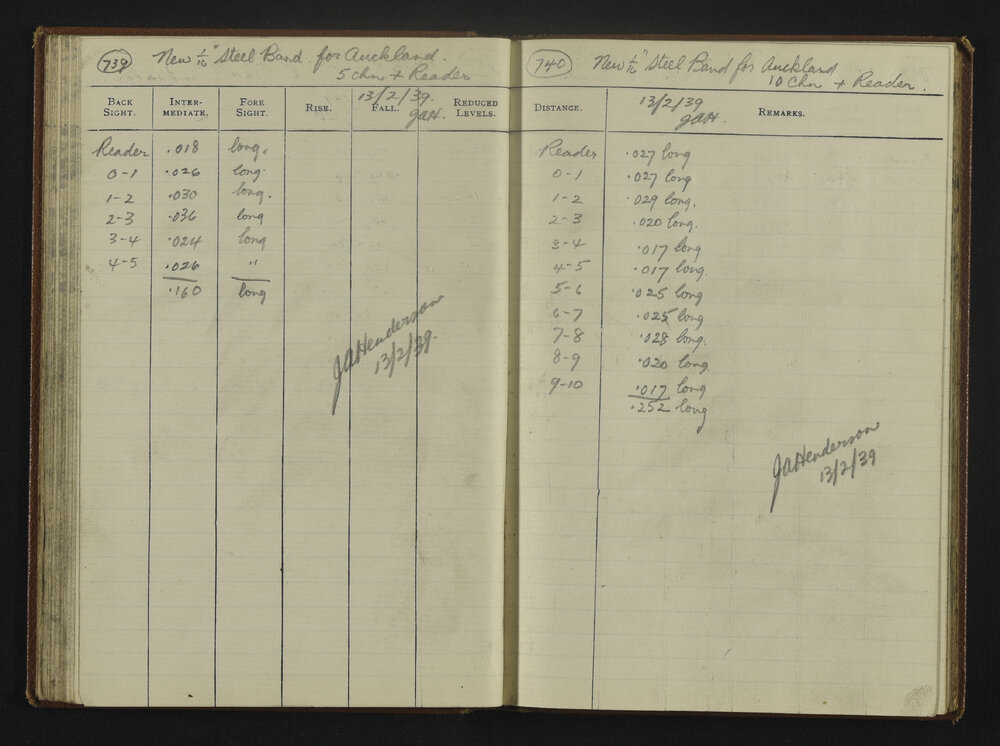 739 New 1/16" Steel Band for Auckland.
5 chn + Reader
13/2/39.
JAH.
BACK SIGHT. INTER-MEDIATE. FORE SIGHT. RISE. FALL. REDUCED LEVELS.
Reader .018 long.
0-1 .026 long.
1-2 .030 long.
2-3 .036 long
3-4 .024 long
4-5 .026 "
.160 long
JAHenderson
13/2/39.
740 New 1/16" Steel Band for Auckland
10 Chn + Reader.
13/2/39
JAH.
DISTANCE. REMARKS.
Reader .027 long
0-1 .027 long
1-2 .029 long.
2-3 .020 long.
3-4 .017 long
4-5 .017 long.
5-6 .025 long
6-7 .025 long
7-8 .028 long.
8-9 .020 long.
9-10 .017 long
.252 long
JAHenderson
13/2/39